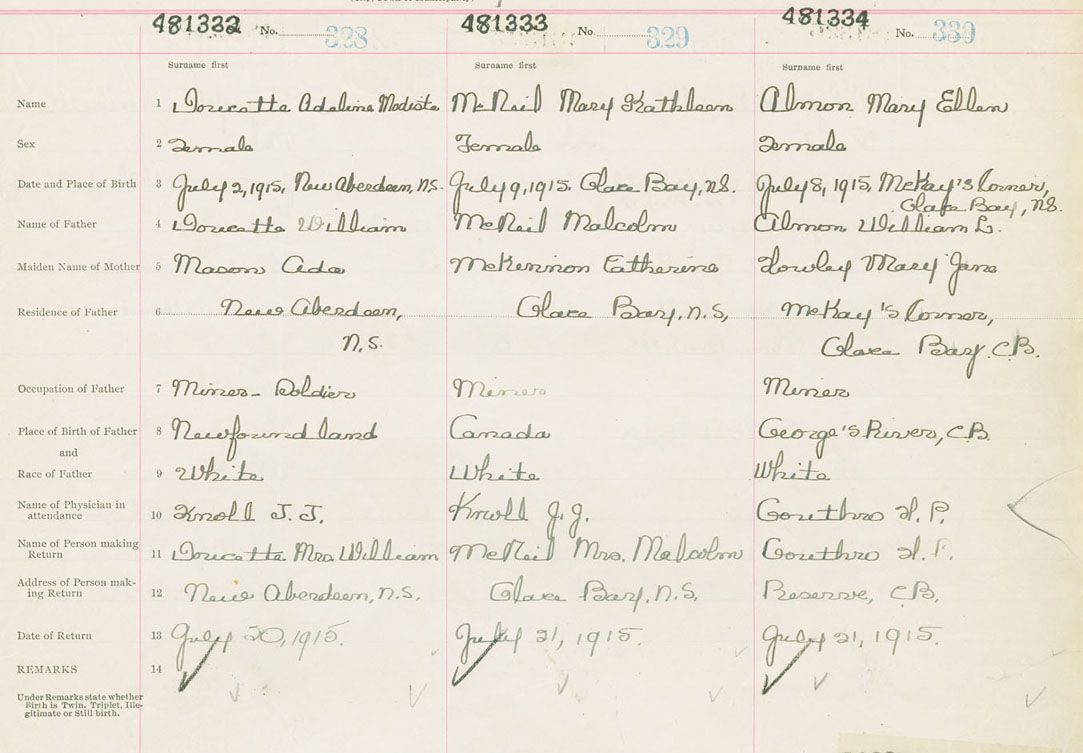 481332 No. 328 481333 No. 329 481334 No. 330
Surname first Surname first Surname first
Name 1 Doucette Adeline Modiste McNeil Mary Kathleen Almon Mary Ellen
Sex 2 Female Female Female
Date and Place of Birth 3 July 2, 1915, New Aberdeen, N.S. July 9, 1915. Glace Bay, N.S. July 8, 1915, McKay's Corner,
Glace Bay, N.S.
Name of Father 4 Doucette William McNeil Malcolm Almon William L.
Maiden Name of Mother 5 Mason Ada McKennon Catherine Howley Mary Jane
Residence of Father 6 New Aberdeen, Glace Bay, N.S, McKay's Corner,
N.S. Glace Bay. C.B.
Occupation of Father 7 Miner - Soldier Miner Miner
Place of Birth of Father 8 Newfoundland Canada George's River, C.B.
and
Race of Father 9 White White White
Name of Physician in
attendance 10 Knoll J. J. Knoll J. J. Gouthro H. P.
Name of Person making
Return 11 Doucette Mrs William McNeil Mrs. Malcolm Gouthro H. P.
Address of Person mak-
ing Return 12 New Aberdeen, N.S. Glace Bay, N.S, Reserve, C.B.
Date of Return 13 July 20, 1915. July 21, 1915. July 21, 1915.
REMARKS 14
Under Remarks state whether
Birth is Twin, Triplet, Ille-
gitimate or Still birth.